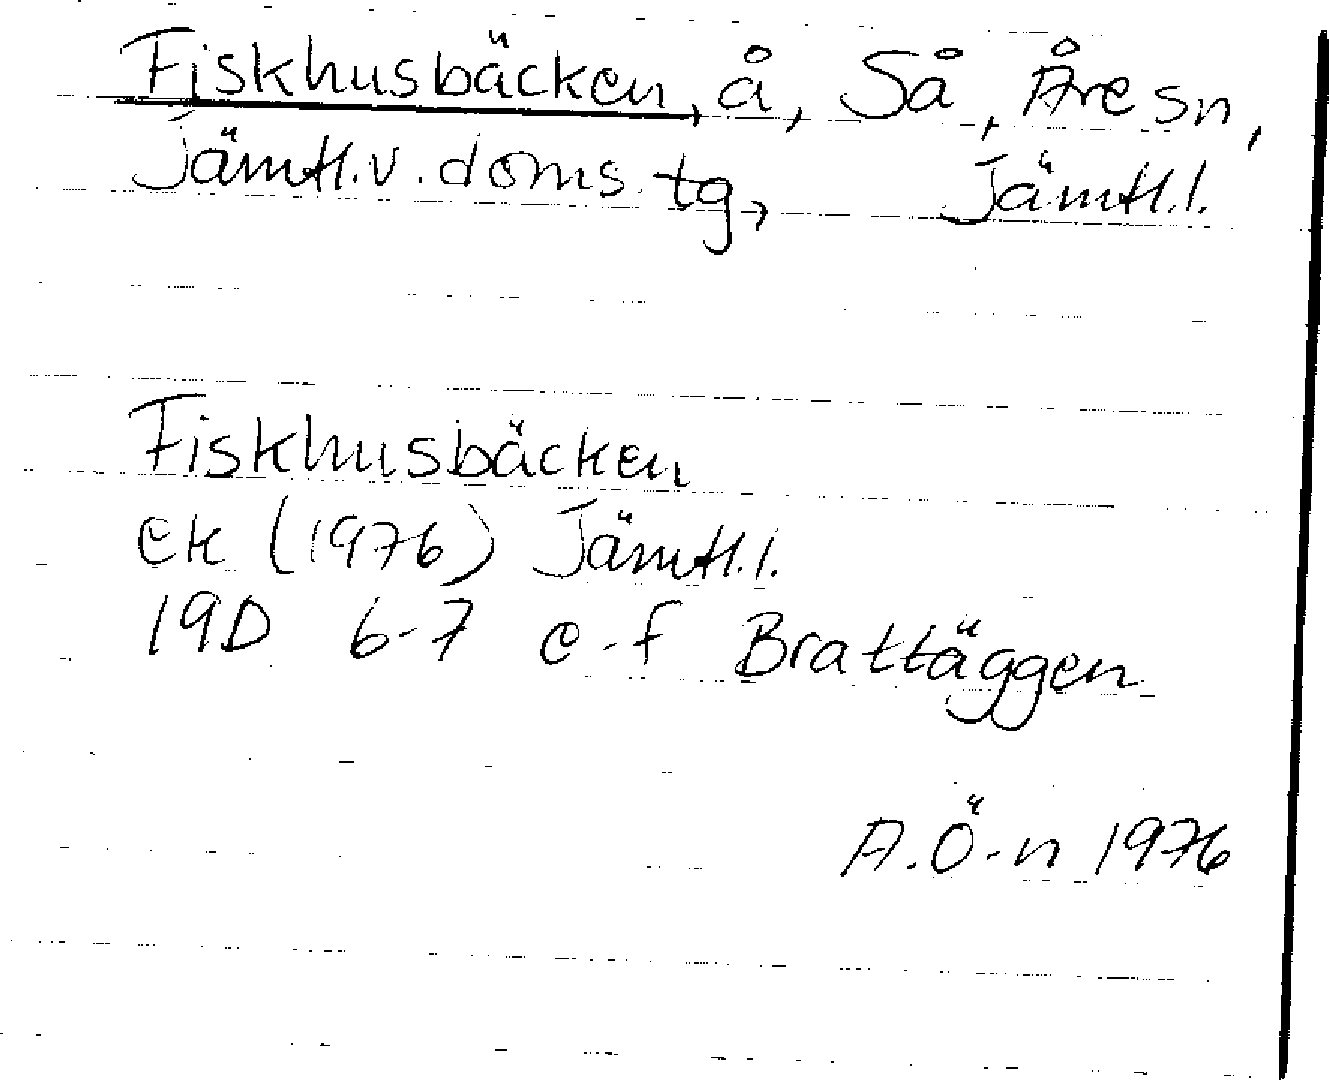 Fiskhusbäcken, å, Så, Åre sn,
Jämtl. v. doms. tg, Jämtl. l.
Fiskhusbäcken
ek (1976) Jämtl. l.
19D 6-7 e-f Brattäggen
A. Ö-n 1976